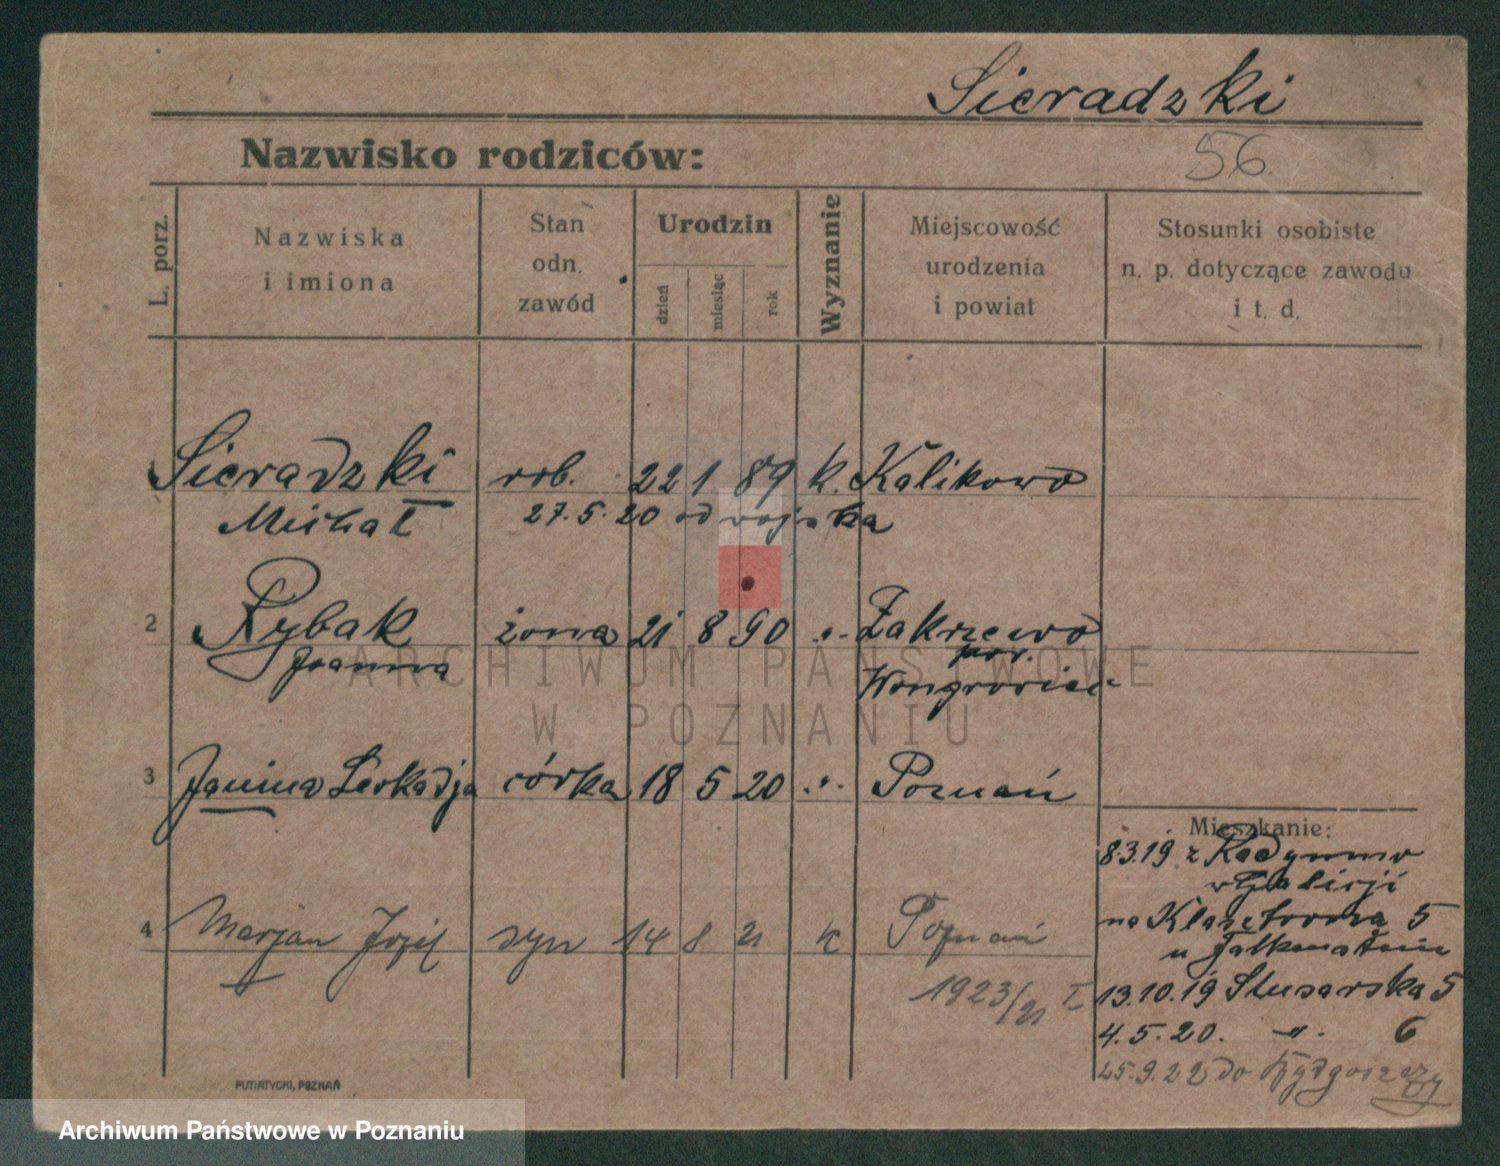 Sieradzki
Nazwisko rodziców:
56
L. porz.
Nazwiska
i imiona
Stan
odn.
zawód
Urodzin
dzień
miesiąc
rok
Wyznanie
Miejscowość
urodzenia
i powiat
Stosunki osobiste
n. p. dotyczące zawodu
i t. d.
1 Sieradzki rob. 22 1 89 k. Kalikowo
Michał 27.5.20 od wojska
2 Rybak żona 21 8 90 -"- Zakrzewo
Joanna pow.
Wongrowiec
ARCHIWUM PAŃSTWOWE
W POZNANIU
3 Janina Leokadja córka 18 5 20 -"- Poznań
Mieszkanie:
8.3.19 z Radymno
w Galicji
4 Marjan Józef syn 14 8 21 k Poznań
na Klasztorna 5
u
1923/21 I
13.10.19 Slusarska 5
4.5.20. -"- 6
25.9.22 do Bydgoszczy
PUTIATYCKI, POZNAŃ
Archiwum Państwowe w Poznaniu